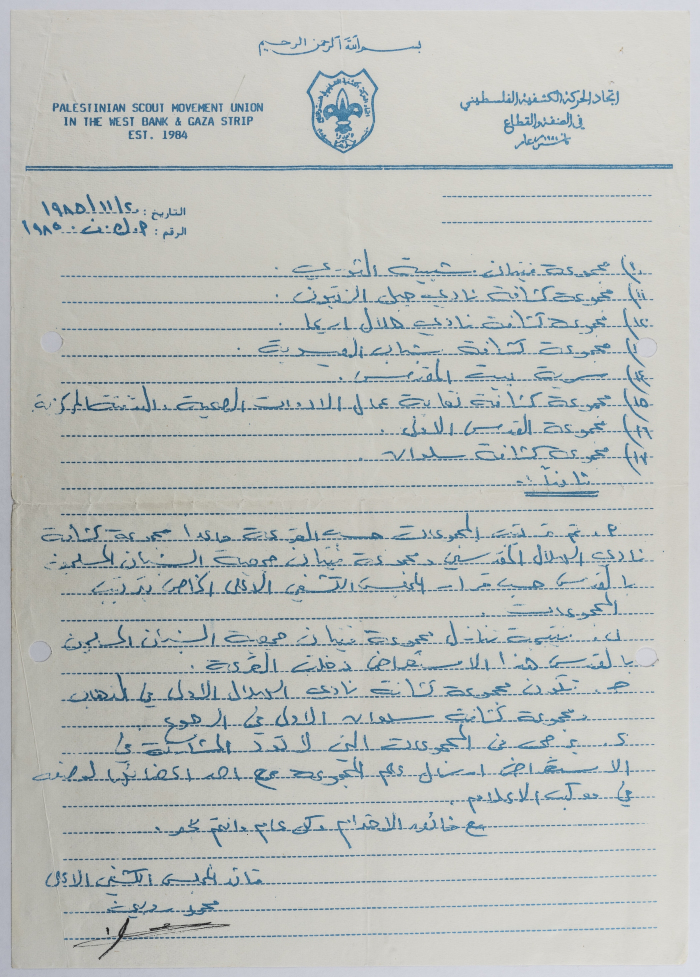 بسم الله الرحمن الرحيم
PALESTINIAN SCOUT MOVEMENT UNION
IN THE WEST BANK & GAZA STRIP
EST. 1984
اتحاد الحركة الكشفية الفلسطيني
في الضفة والقطاع
التاريخ : ١٩٨٥/١١/٢٠
الرقم : ١٩٨٥
١٠) مجموعة فتيان شبيبة الثوري .
١١) مجموعة كشافة نادي جبل الزيتون .
١٢) مجموعة كشافة نادي هلال اريحا .
مجموعة كشافة شباب العيسوية .
١٤) سرية بيت المقدس .
١٥) مجموعة كشافة نقابة عمال الادوات الصحية والتدفئة المركزية
١٦) مجموعة القدس الاولى .
١٧) مجموعة كشافة سلوان .
ثانيا :
تم ترتيب المجموعات حسب القرعة ماعدا مجموعة كشافة
نادي الهلال المقدسي ومجموعة فتيان جمعية الشبان المسلمين
بالقدس حسب قرار المجلس الكشفي الاعلى الخاص بترتيب
المجموعات .
ب. نتيجة تنازل مجموعة فتيان جمعية الشبان المسلمين
بالقدس هذا الاستعراض دخلت القرعة .
ج. تكون مجموعة كشافة نادي الهلال الاولى في الذهاب
ومجموعة كشافة سلوان الاولى في الرجوع .
د. يرجى من المجموعات التي لا تود المشاركة في
الاستعراض ارسال علم المجموعة مع احد اعضائها لوضعه
في موكب الاعلام .
مع فائق الاحترام وكل عام وانتم بخير .
قائد المجلس الكشفي الاعلى
محمد